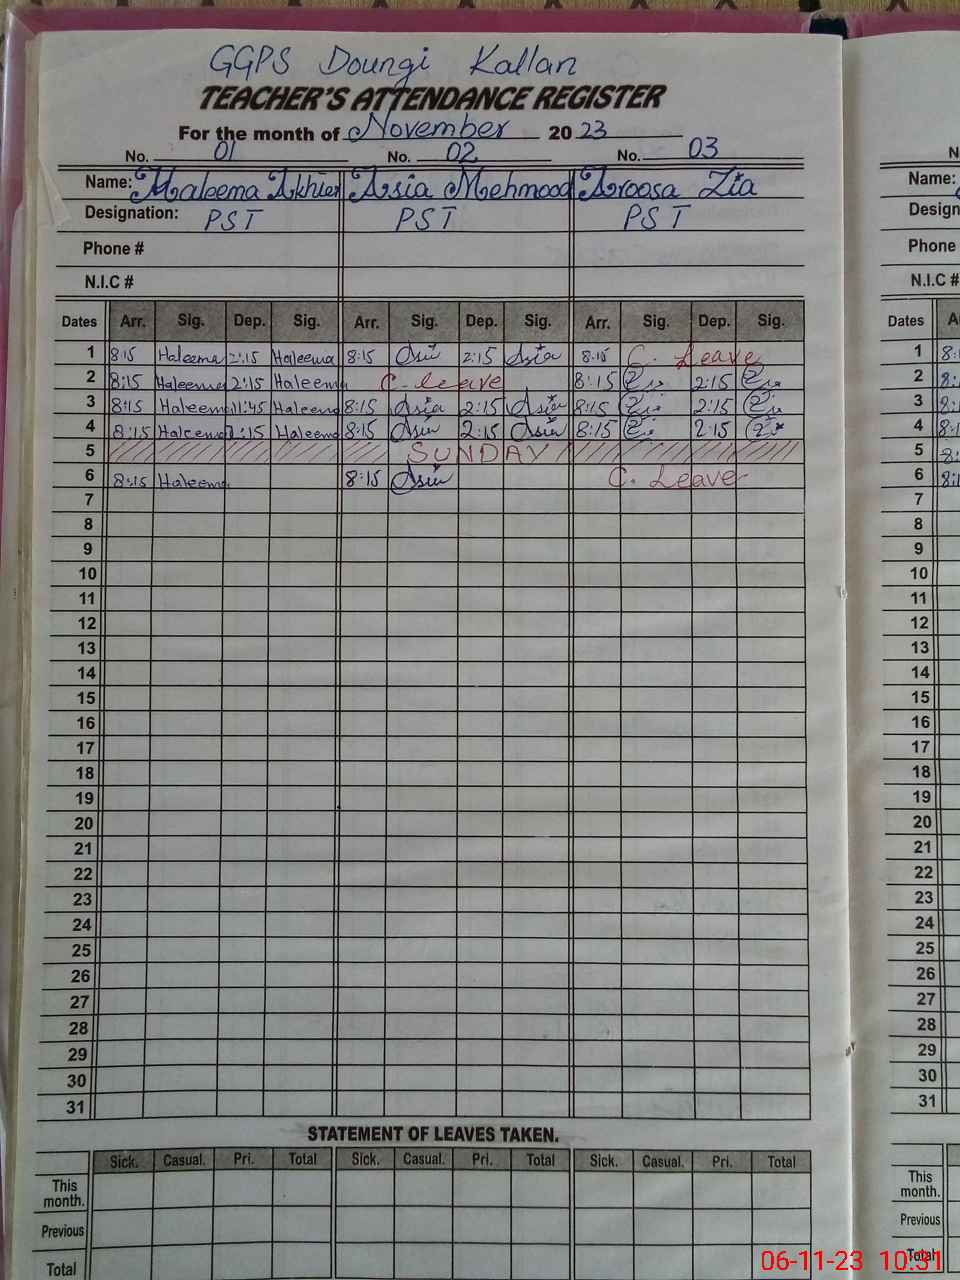 GGPS Doungi Kallan
TEACHER'S ATTENDANCE REGISTER
For the month of November 2023
No. 01 No. 02 No. 03
Name: Haleema Akhter Asia Mehmood Aroosa Zia
Designation: PST PST PST
Phone #
N.I.C #
Dates Arr. Sig. Dep. Sig. Arr. Sig. Dep. Sig. Arr. Sig. Dep. Sig.
1 8:15 Haleema 2:15 Haleema 8:15 Asia 2:15 Asia 8:15 C. Leave
2 8:15 Haleema 2:15 Haleema C. leave 8:15 2:15
3 8:15 Haleema 11:45 Haleema 8:15 Asia 2:15 Asia 8:15 2:15
4 8:15 Haleema 2:15 Haleema 8:15 Asia 2:15 Asia 8:15 2:15
5 SUNDAY
6 8:15 Haleema 8:15 Asia C. Leave
7
8
9
10
11
12
13
14
15
16
17
18
19
20
21
22
23
24
25
26
27
28
29
30
31
STATEMENT OF LEAVES TAKEN.
Sick. Casual. Pri. Total Sick. Casual. Pri. Total Sick. Casual. Pri. Total
This month.
Previous
Total
Name:
Phone
N.I.C #
Dates
1 8:
2 8:
3 8:
4 8:
5 8:
6 8:
7
8
9
10
11
12
13
14
15
16
17
18
19
20
21
22
23
24
25
26
27
28
29
30
31
This month.
Previous
Total
06-11-23 10:31